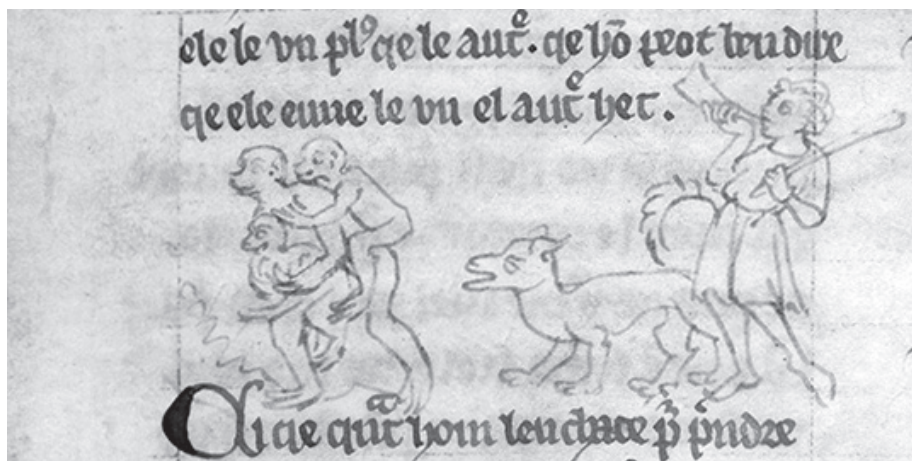 ele le vn pl⁹ qe le autͤ. qe hō peot ben dire
qe ele eime le vn el autͤ het.
qe qͣt hom len chace p̄ pͥndre